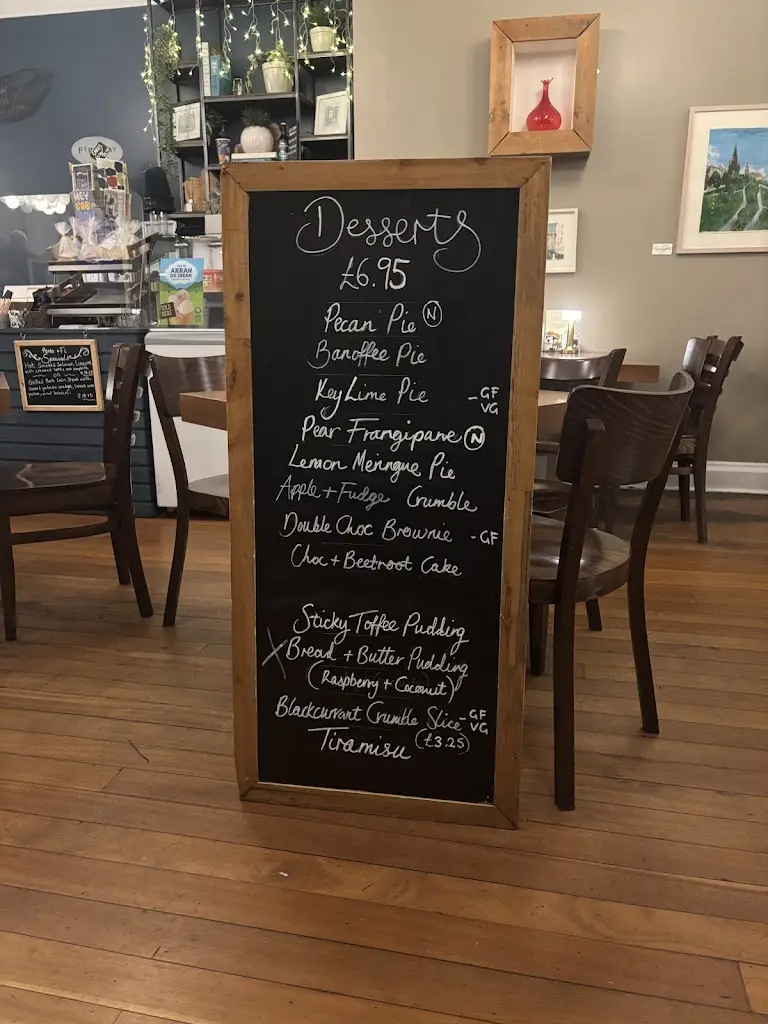 Desserts
£6.95
Pecan Pie N
Banoffee Pie
Key Lime Pie - GF VG
Pear Frangipane N
Lemon Meringue Pie
Apple + Fudge Crumble
Double Choc Brownie - GF
Choc + Beetroot Cake
Sticky Toffee Pudding
X Bread + Butter Pudding
(Raspberry + Coconut)
Blackcurrant Crumble Slice - GF VG
Tiramisu (£3.25)
ARRAN
ICE CREAM
Specials
Hot Smoked Salmon Linguine